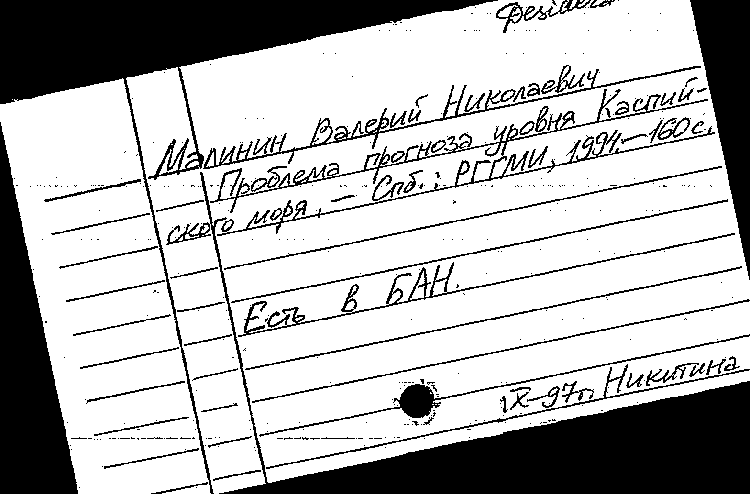 Малинин, Валерий Николаевич
Проблема прогноза уровня Каспий-
ского моря. — Спб.: РГГМИ, 1994.—160с.
Есть в БАН.
IX-97г. Никитина